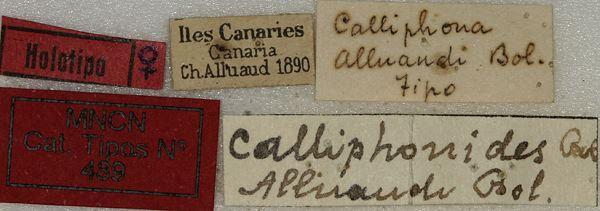 Holotipo ♀
Iles Canaries
Canaria
Ch Alluaud 1890
Calliphona
Alluandi Bol.
Tipo
MNCN
Cat. Tipos Nº
489
Calliphonides
Alluandi Bol.